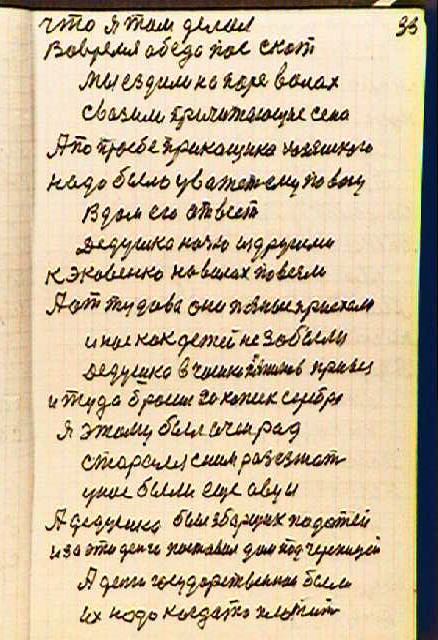 33
что я там делал
Вовремя обеда пас скот
Мы ездили на паре волах
Свозили причитающие сена
А по прозбе приказщика хозяйского
надо было уважать ему по возу
В дом его отвест
Дедушка ночю из другими
К Яковенко на волах повезли
А от тудова они пяные приехали
и нас как детей не забыли
Дедушка в чашке привез
и туда бросил 20 копеек серебра
Я этому был очен рад
старался сним разезжат
у нас были еще овцы
А дедушка был зборщик податей
и за эти денги поставил дом под черепицей
А денги государственные были
Их надо когдато платит